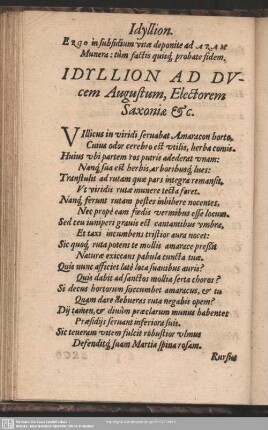 Idyllion.
Ergo in subsidium vitæ deponite ad ARAM
Munera: tùm factis quisq́, probate fidem.
IDYLLION AD DV-
cem Augustum, Electorem
Saxoniæ &c.
Villicus in viridi seruabat Amaracon horto,
Cuius odor cerebro est vtilis, herba comis.
Huius vbi partem ros putris adederat vnam:
Nanq́, sua est herbis ac boribusq́, lues:
Transtulit ad rutam quæ pars integra remansit,
Vt viridis rutæ munere tecta foret.
Nanq́, ferunt rutam pestes inhibere nocentes,
Nec propè eam fœdis vermibus esse locum.
Sed ceu iuniperi grauis est cantantibus vmbra,
Et taxi incumbens tristior aura nocet:
Sic quoq́, ruta potens te mollis amarace pressit
Naturæ exiccans pabula cuncta tuæ.
Quis nunc afficiet latè loca suauibus auris?
Quis dabit ad sanctos mollia serta choros?
Si decus hortorum succumbet amaracus, & tu
Quam dare debueras ruta negabis opem?
Dij tamen, & diuûm præclarum munus habentes
Præsidijs seruant inferiora suis.
Sic teneram vitem fulcit robustior vlmus
Defenditq́, suam Martia spina rosam.
Rursus